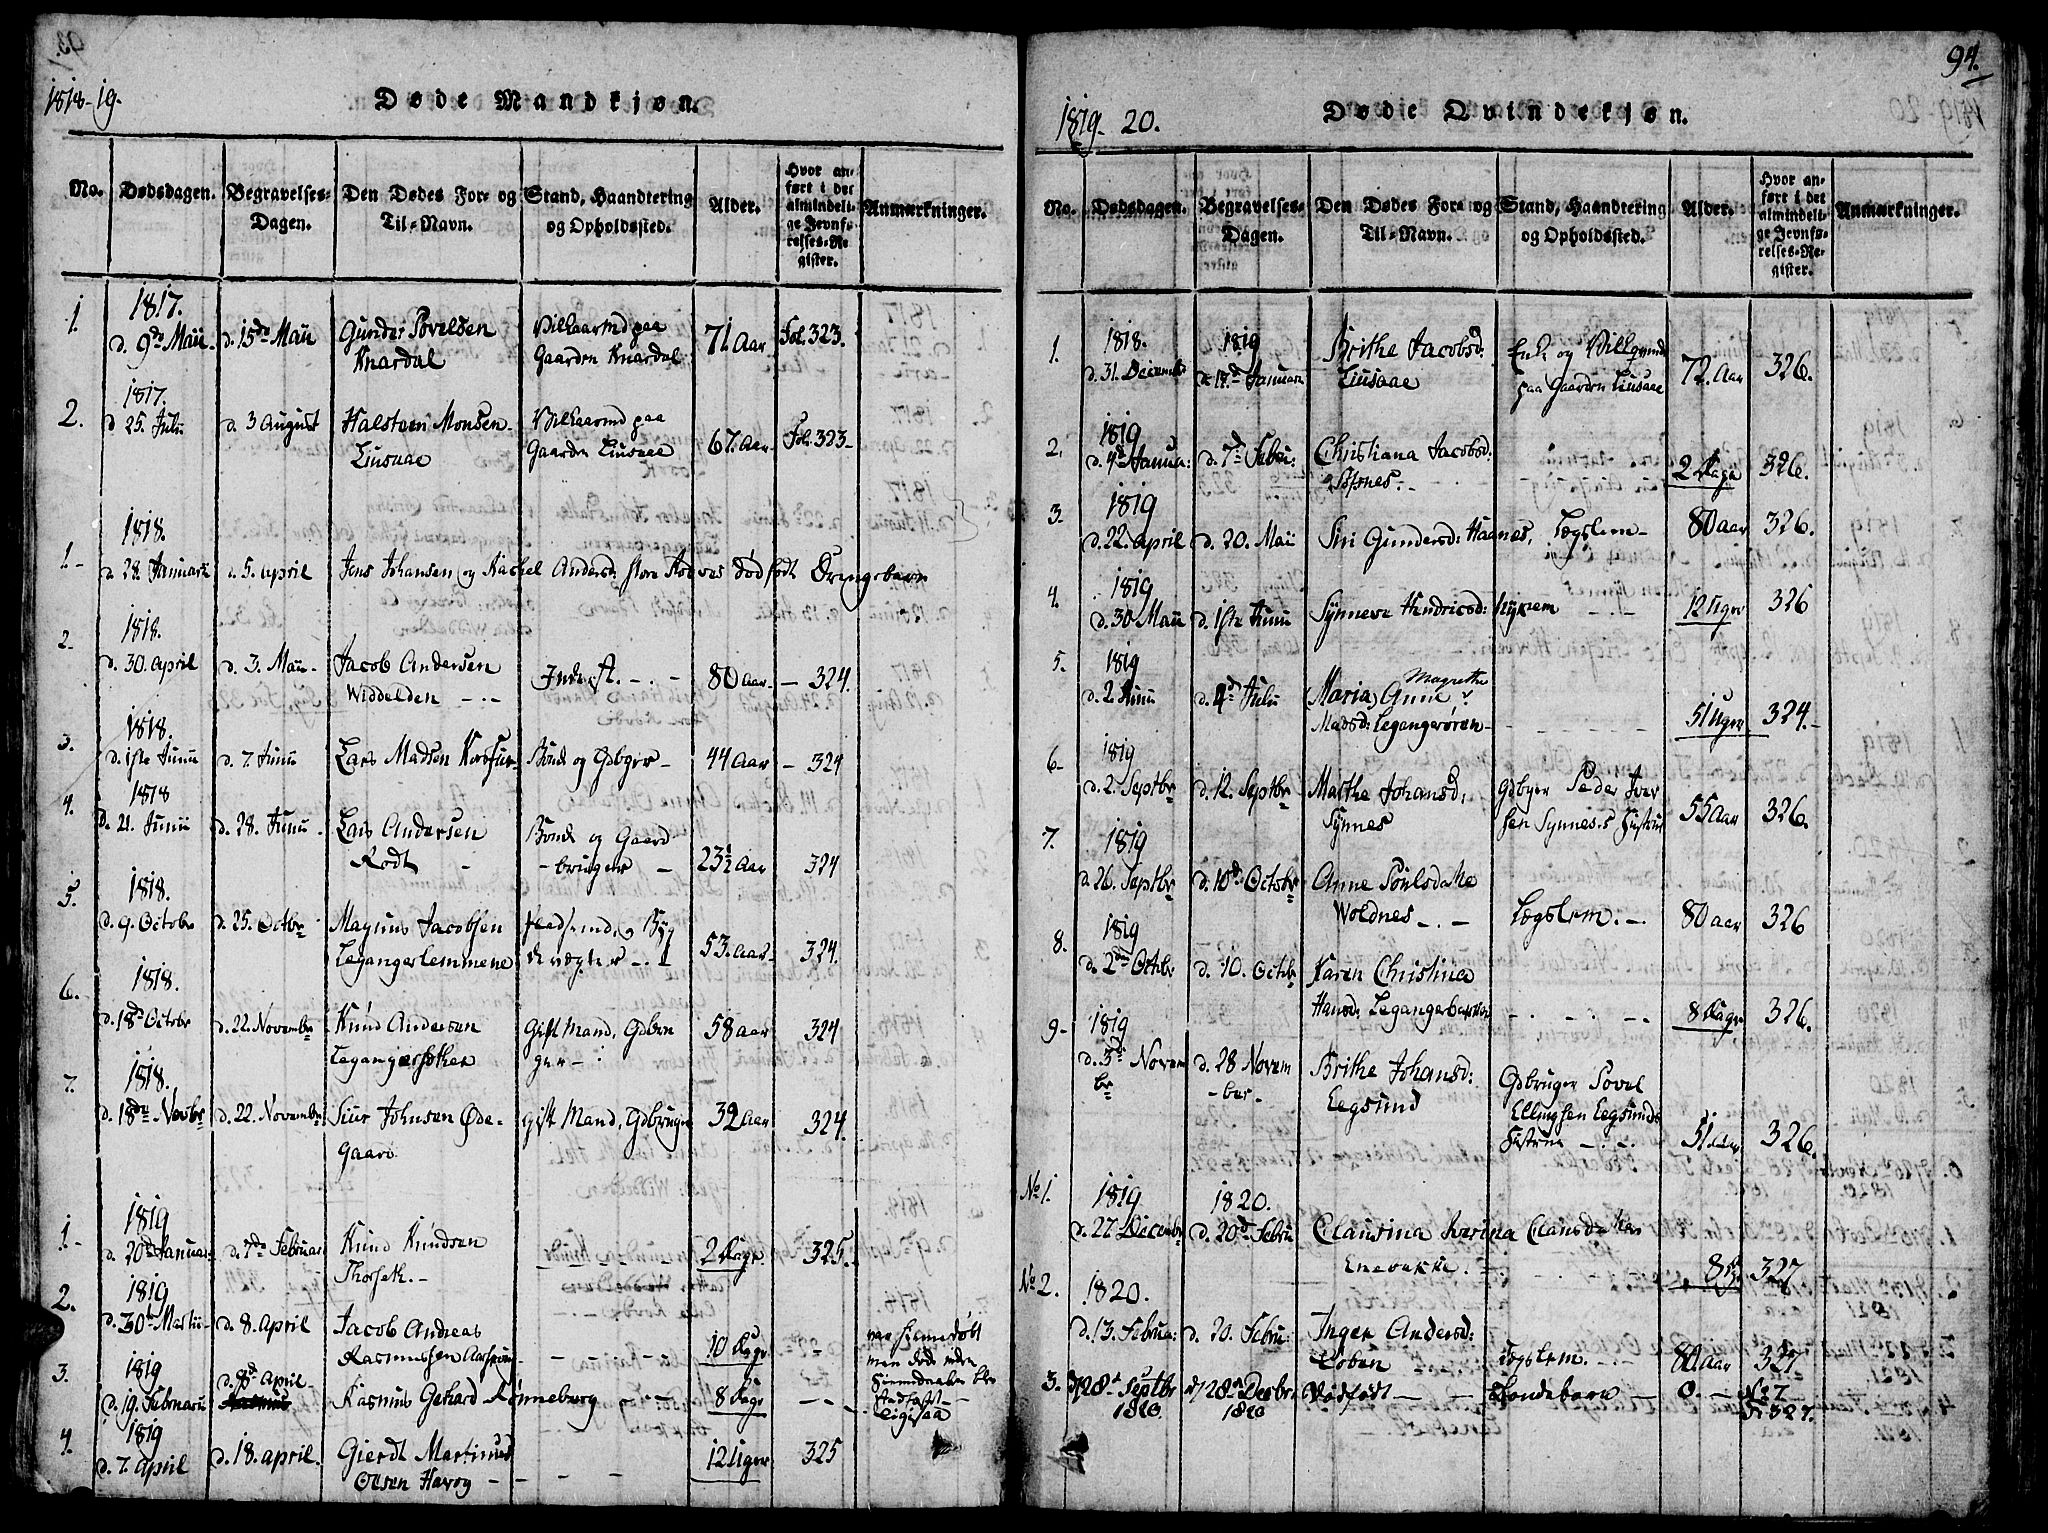 1818-19.
Døde Mandkjøn.
No.
Dødsdagen.
Begravelses-
Dagen.
Den Dødes For- og
Til-Navn.
Stand, Haandtering
og Opholdssted.
Alder.
Hvor an-
ført i det
almindeli-
ge Jevnfø-
relses-Re-
gister.
Anmærkninger.
1.
1817.
d. 9de Maii
d. 15de Maii
Gunder Povelsen
Knardal
Vilkaarmd paa
Gaarden Knardal
71. Aar
Fol. 323.
2.
1817.
d 25. Julii
d. 3 August
Halsten Monsen
Liusaae
Vilkaarmd paa
Gaarden Liusaae
67. Aar
Fol. 323
1.
1818.
d. 28. Januarii
d. 5. April
Jens Johansen og Rachel Andersd: store dødfødt Drengebarn
2.
1818.
d. 30. April
d. 3. Maii
Jacob Andersen
Widdelden
Inderst.
80 Aar
324.
3.
1818.
d. 1ste Junii
d. 7 Junii
Lars Madsen
Bonde og Gdbger
44 Aar
324
4.
1818
d. 21. Junii
d. 28. Junii
Lars Andersen
Rodt
Bonde og Gaard
bruger
23½ Aar
324
5.
1818.
d. 9. Octobr
d. 25. Octbr
Magnus Jacobsen
Legangerlemmene
53. Aar
324.
6.
1818.
d. 18de Octobr
d. 22. Novembr
Knud Andersen
Legangersæther
Gift Mand, Gdbru
ger
58 Aar
324
7.
1818.
d. 18de Novbr
d. 22. Novembr
Siur Johnsen Øde-
Gaard
Gift Mand, Gdbruger
32 Aar
324.
1.
1819
d. 20de Januar
d. 7de Februar
Knud Knudsen
Thorseth.
2 Dage
325.
2.
1819
d. 30te Martii
d. 8. April
Jacob Andreas
Rasmussen
10 Dage
var hjemmedøbt
men døde inden
3.
1819
d. 19. Februarii
d. 8de April
Rasmus Gerhard Rønneberg
8 Dage
4.
1819
d. 7. April
d. 18. April.
Gierdt Martinus
Olsen Havog
12 Uger
325
94.
1819-20.
Døde Qvindekjøn.
No.
Dødsdagen.
Begravelses-
Dagen.
Den Dødes For- og
Til-Navn.
Stand, Haandtering
og Opholdssted.
Alder.
Hvor an-
ført i det
almindeli-
ge Jevnfø-
relses-Re-
gister.
Anmærkninger.
1.
1818.
d. 31. Decembr
1819
d. 17d Januarii
Brithe Jacobsd:
Liusaae
Enke og
paa Gaarden Liusaae
72. Aar
326.
2.
1819
d. 4d Janua:
d. 7de Febru:
Christiana Jacobsd:
2 Dage
326.
3.
1819
d. 22. April
d. 20. Maii
Siri Gundersd: Haanes,
Lægslem
80 Aar
326.
4.
1819
d. 30 Maii
d. 1ste Junii
Synneve Hendricsd: Nykrem
12 Uger
326
5.
1819
d. 2. Junii
d. 4d Julii
Maria, Anne Magrethe
Madsd: Legangerøren
51 Uger
324.
6.
1819
d. 2. Septbr
d. 12. Septbr
Marthe Johansd:
Synnes
Gdbger Peder Iver
sen Synnes's Hustru
55 Aar
326.
7.
1819
d. 26. Septbr
d. 10de Octobr
Anne Poulsdatte
Woldnes
Lægslem.
80 Aar
326
8.
1819
d. 2den Octbr
d. 10. Octbr
Karen Christina
Hansd:
8 Dage
326.
9.
1819
d. 3de Novem
br
d. 28 Novem
ber
Brithe Johansd:
Eegsund
Gdbruger Povel
Ellingsen Eegsunds
Hustrue
51. Aar
326.
No 1.
1819
d. 27. Decembr
1820.
d. 20d Febru
Claurina Serina Clausdatter
8
327
No 2.
1820.
d. 13. Februa:
d. 20. Febru:
Inger Andersd:
Løbøn
Lægslem.
80 Aar
327
3.
28de Septbr
1820.
28de Decbr
1820
Dødfødt
0.
No 7
F. 327.